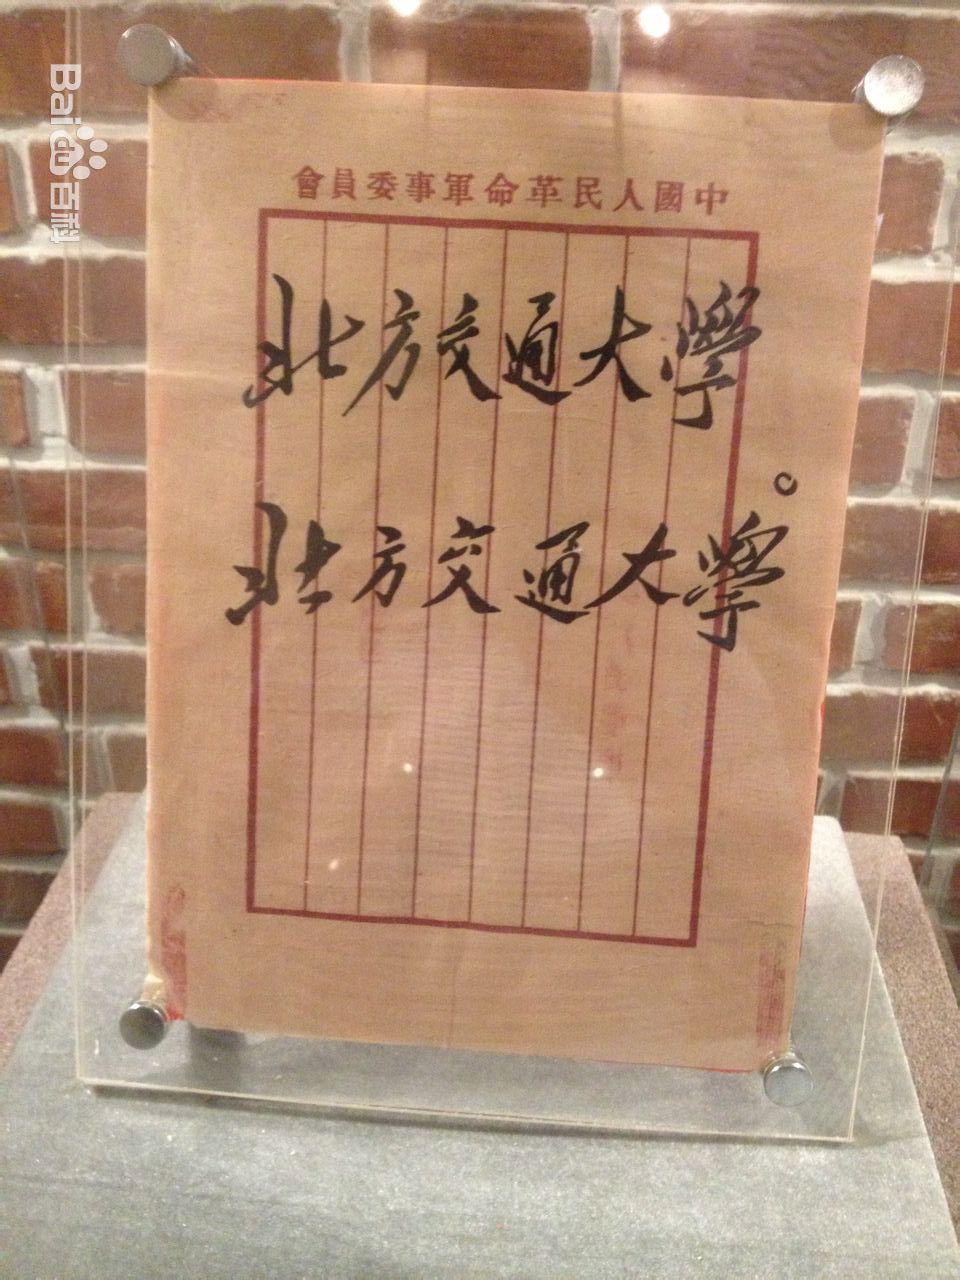 會員委事軍命革民人國中
北方交通大學
。
北方交通大學
Bai du 百科